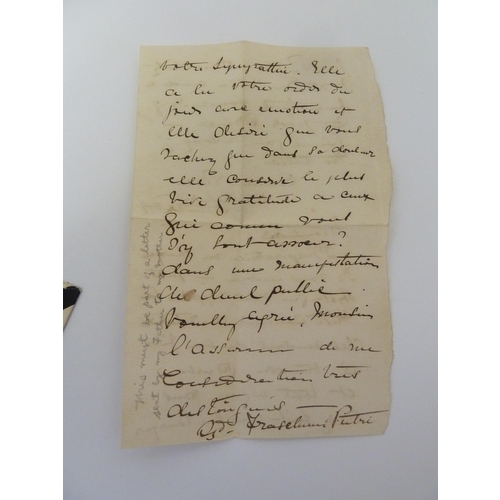 votre Sympathie. Elle
a lu votre ordre du
jour avec emotion et
elle désire que vous
sachez que dans sa douleur
elle conserve la plus
vive gratitude a ceux
qui comme vous
s'y sont associer?
dans une manifestation
de deuil public.
Veuillez agréer, Monsieur
l'assurance de ma
Consideration très
distinguée
This must be part of a letter
sent by my Father to my mother